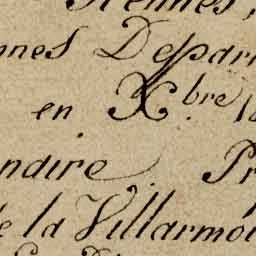 Rennes,
nnes Depart
en X.bre 18
ndire Pr
de la Villarmoi